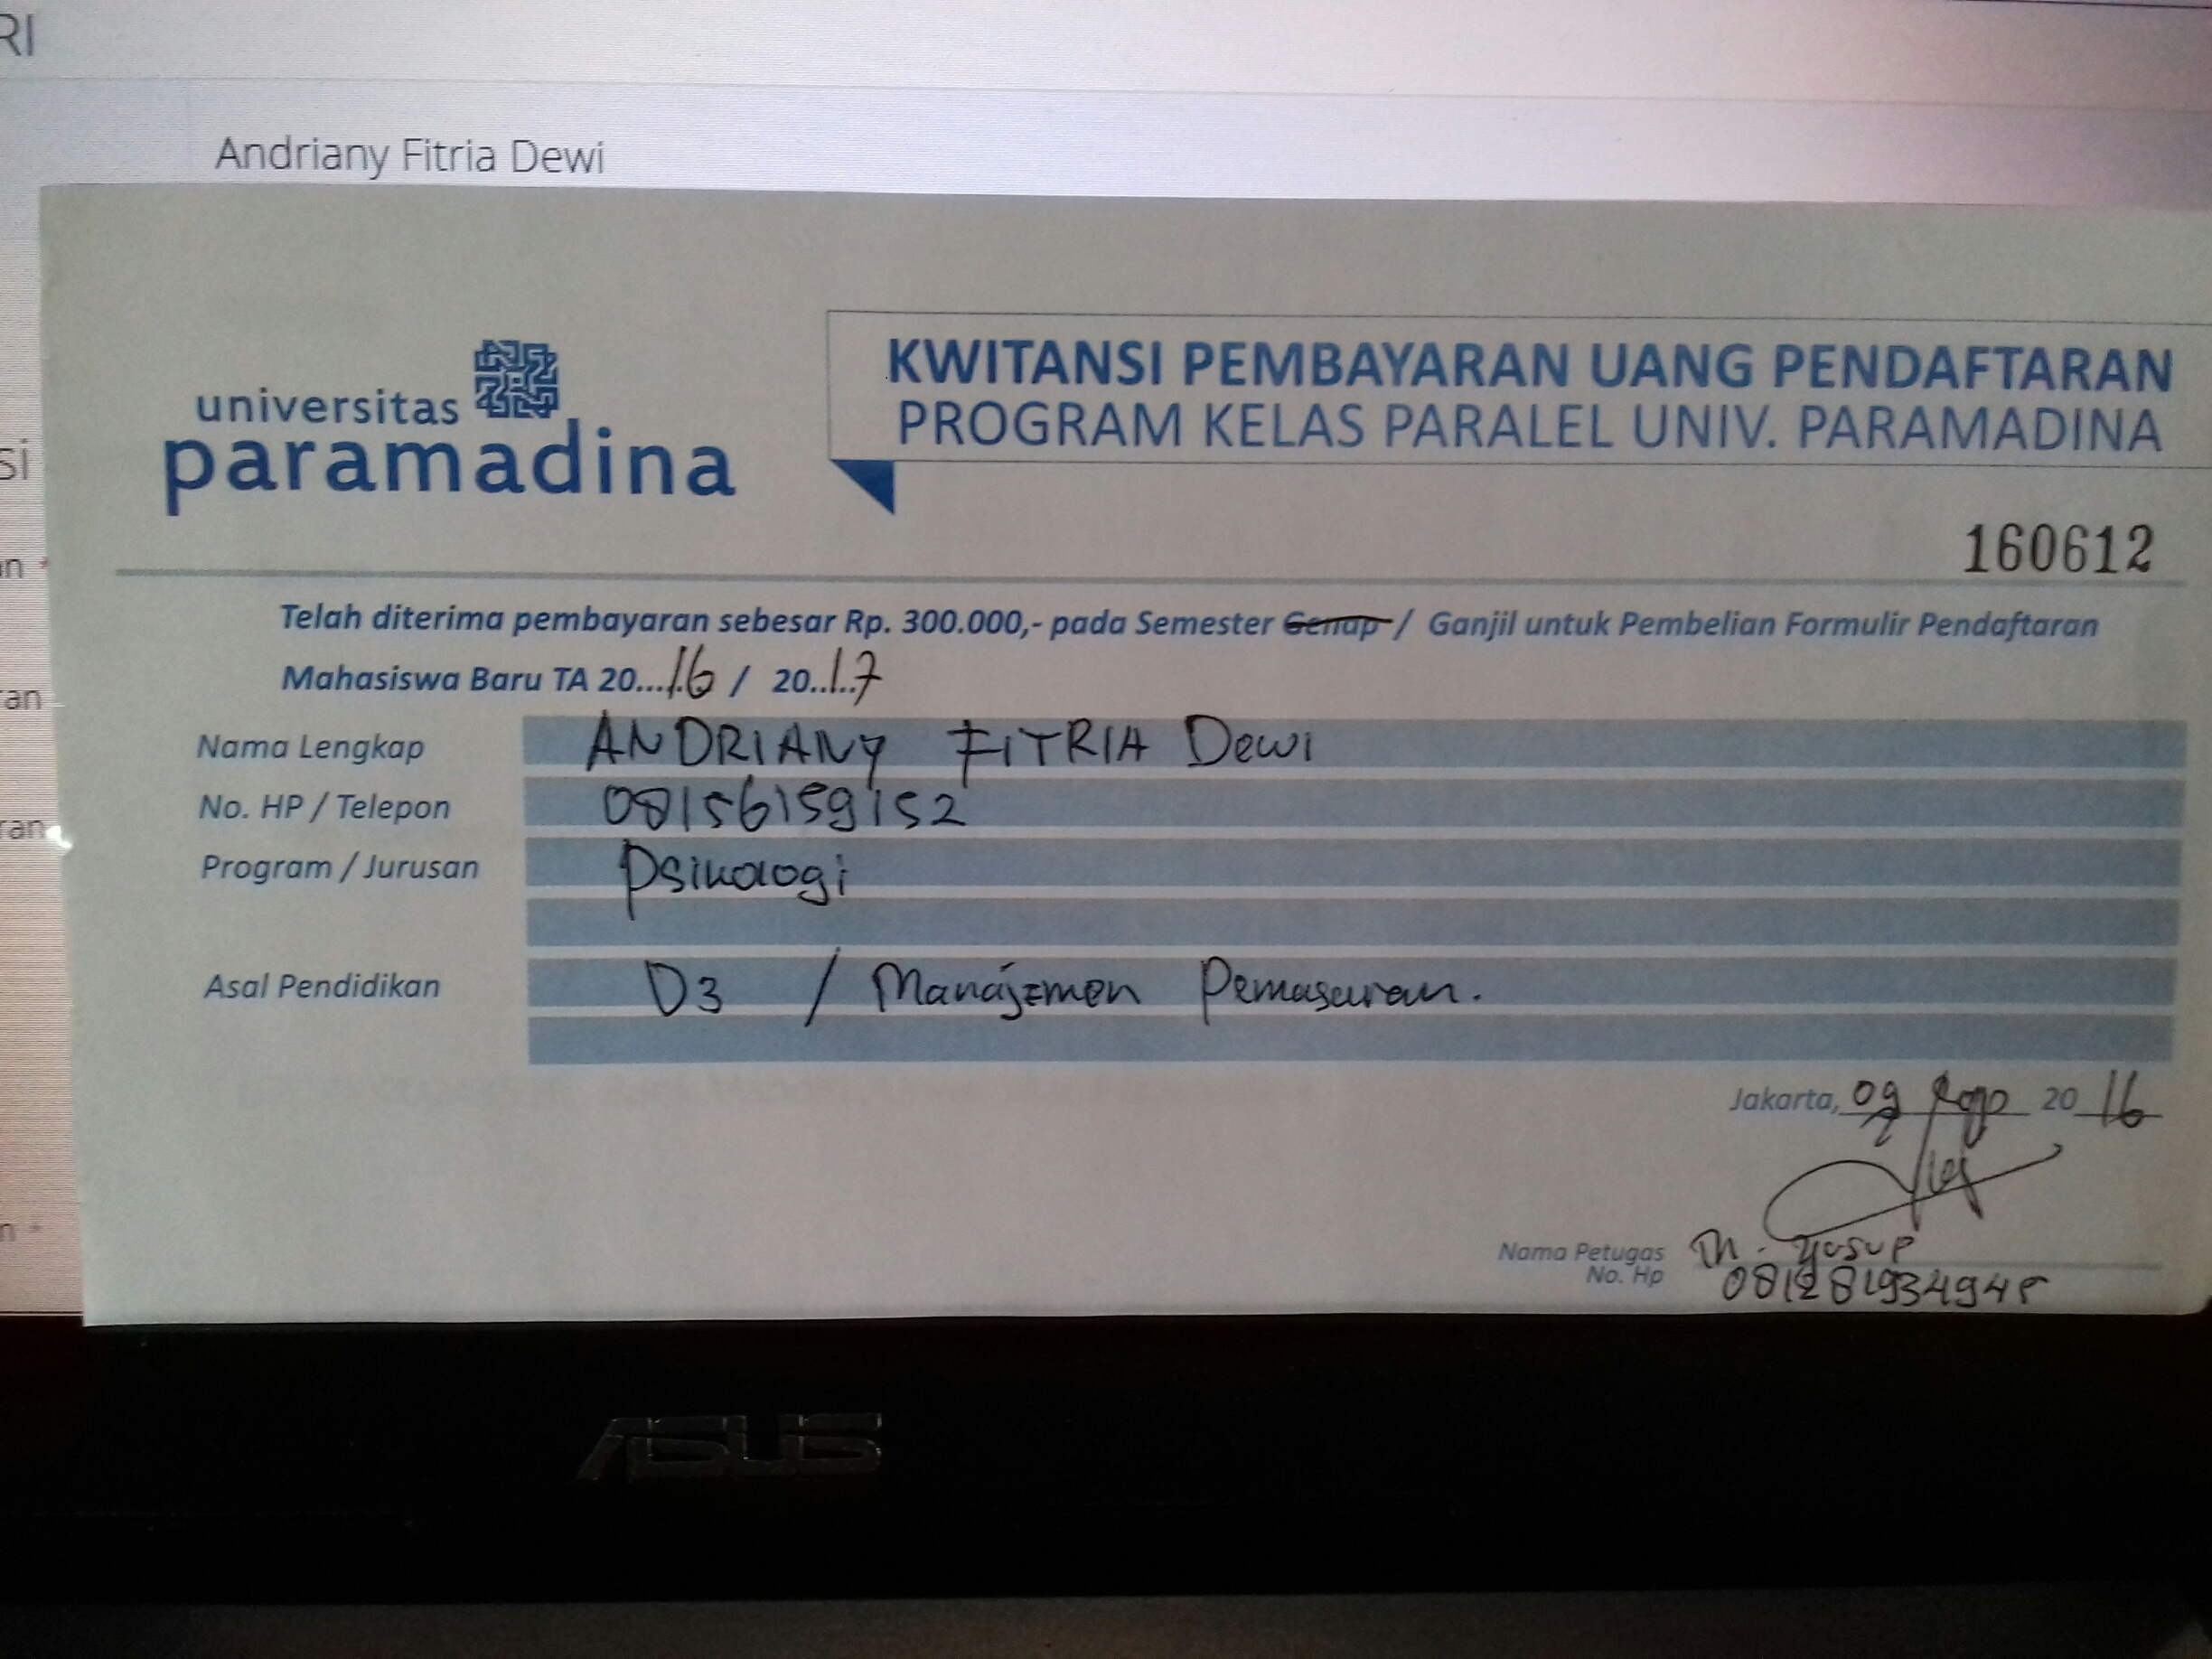 RI
Andriany Fitria Dewi
universitas
paramadina
KWITANSI PEMBAYARAN UANG PENDAFTARAN
PROGRAM KELAS PARALEL UNIV. PARAMADINA
si
160612
an *
Telah diterima pembayaran sebesar Rp. 300.000,- pada Semester Genap / Ganjil untuk Pembelian Formulir Pendaftaran
Mahasiswa Baru TA 20...16 / 20..17
ran
Nama Lengkap ANDRIANY FITRIA Dewi
No. HP / Telepon 08156159152
ran
Program / Jurusan Psikologi
Asal Pendidikan D3 / Manajemen Pemasaran.
Jakarta, 09 20 16
Nama Petugas Yusup
No. Hp
ASUS